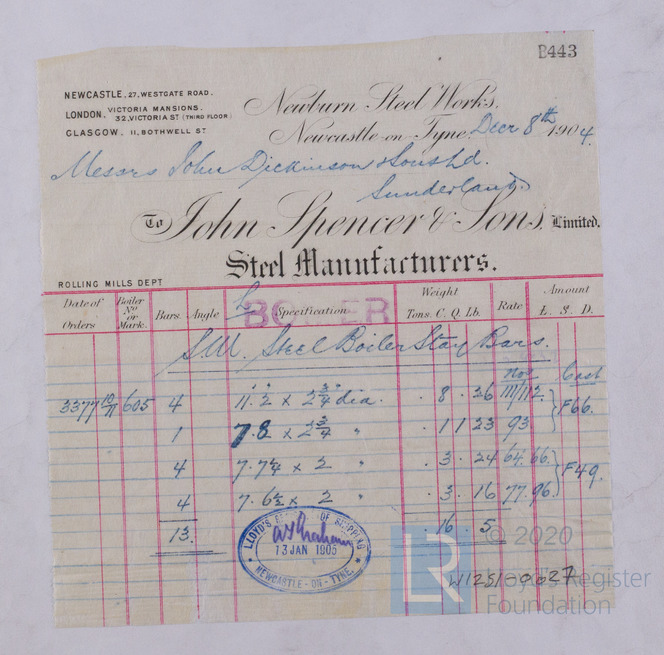 B443
NEWCASTLE, 27, WESTGATE ROAD.
LONDON, VICTORIA MANSIONS. 32, VICTORIA ST (THIRD FLOOR)
GLASGOW, 11, BOTHWELL ST
Newburn Steel Works,
Newcastle-on-Tyne, Decr 8th 1904.
Messrs John Dickinson & Sons Ld.
Sunderland.
To John Spencer & Sons, Limited.
Steel Manufacturers.
ROLLING MILLS DEPT
BOILER
Date of Orders Boiler No or Mark. Bars. Angle Specification Weight Tons. C. Q. Lb. Rate Amount £. S. D.
S.M. Steel Boiler Stay Bars.
Nos Cast
3377 10/11 605 4 11.2 x 2 3/4 dia. . 8 . 26 111/112 } F66.
1 7.8 x 2 3/4 " . 1 1 23 93
4 7.7 1/4 x 2 " . 3 . 24 64.66 } F49.
4 7.6 1/2 x 2 " . 3 . 16 77.96
13. . 16 . 5
LLOYD'S REGISTER OF SHIPPING
13 JAN 1905
NEWCASTLE-ON-TYNE.
LR
© 2020
Lloyd's Register
Foundation
W1251-0027